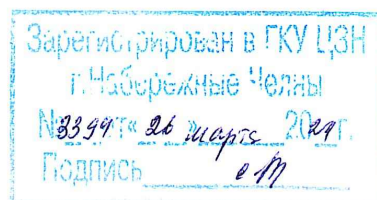 Зарегистрирован в ГКУ ЦЗН
г. Набережные Челны
№ 3399 от « 26 » марта 20 г.
Подпись